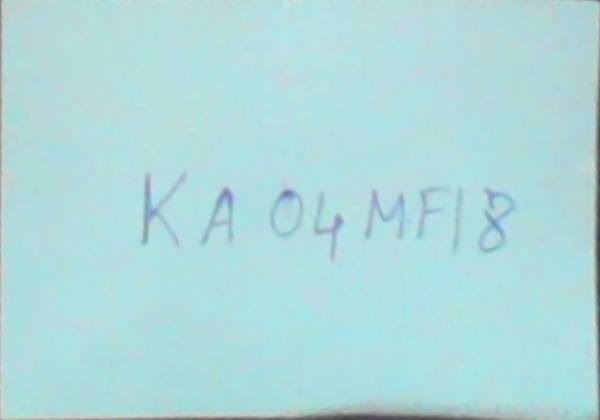 KA 04MF18